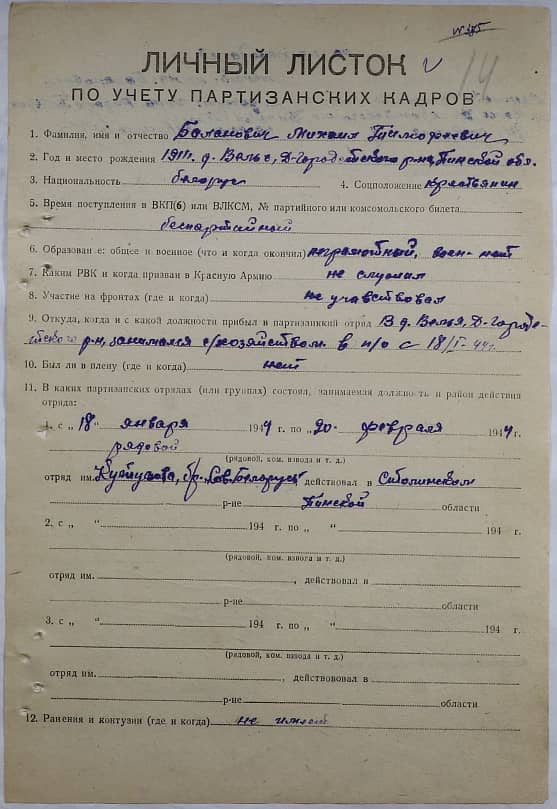 14
ЛИЧНЫЙ ЛИСТОК
ПО УЧЕТУ ПАРТИЗАНСКИХ КАДРОВ
1. Фамилия, имя и отчество Баланович Михаил Тимофеевич
2. Год и место рождения 1911 г. д. Велье, Д-Город-ского р-на, Пинской обл.
3. Национальность белорус 4. Соцположение крестьянин
5. Время поступления в ВКП(б) или ВЛКСМ, № партийного или комсомольского билета
беспартийный
6. Образование: общее и военное (что и когда окончил) неграмотный, воен- нет
7. Каким РВК и когда призван в Красную Армию не служил
8. Участие на фронтах (где и когда) не участвовал
9. Откуда, когда и с какой должности прибыл в партизанский отряд В д. Д-Горо-
р-н, занимался с/хозяйством в п/о с 18/I-44 г.
10. Был ли в плену (где и когда) нет
11. В каких партизанских отрядах (или группах) состоял, занимаемая должность и район действия
отряда:
1. с „ 18 " января 194 4 г. по „ 20 " февраля 194 4 г.
рядовой
(рядовой, ком. взвода и т. д.)
отряд им. Кутузова, бр. Сов. Белорус. действовал в Столинском
р-не Пинской области
2. с „ " 194 г. по „ " 194 г.
(рядовой, ком. взвода и т. д.)
отряд им. , действовал в
р-не области
3. с „ " 194 г. по „ " 194 г.
(рядовой, ком. взвода и т. д.)
отряд им. , действововал в
р-не области
12. Ранения и контузии (где и когда) не имеет